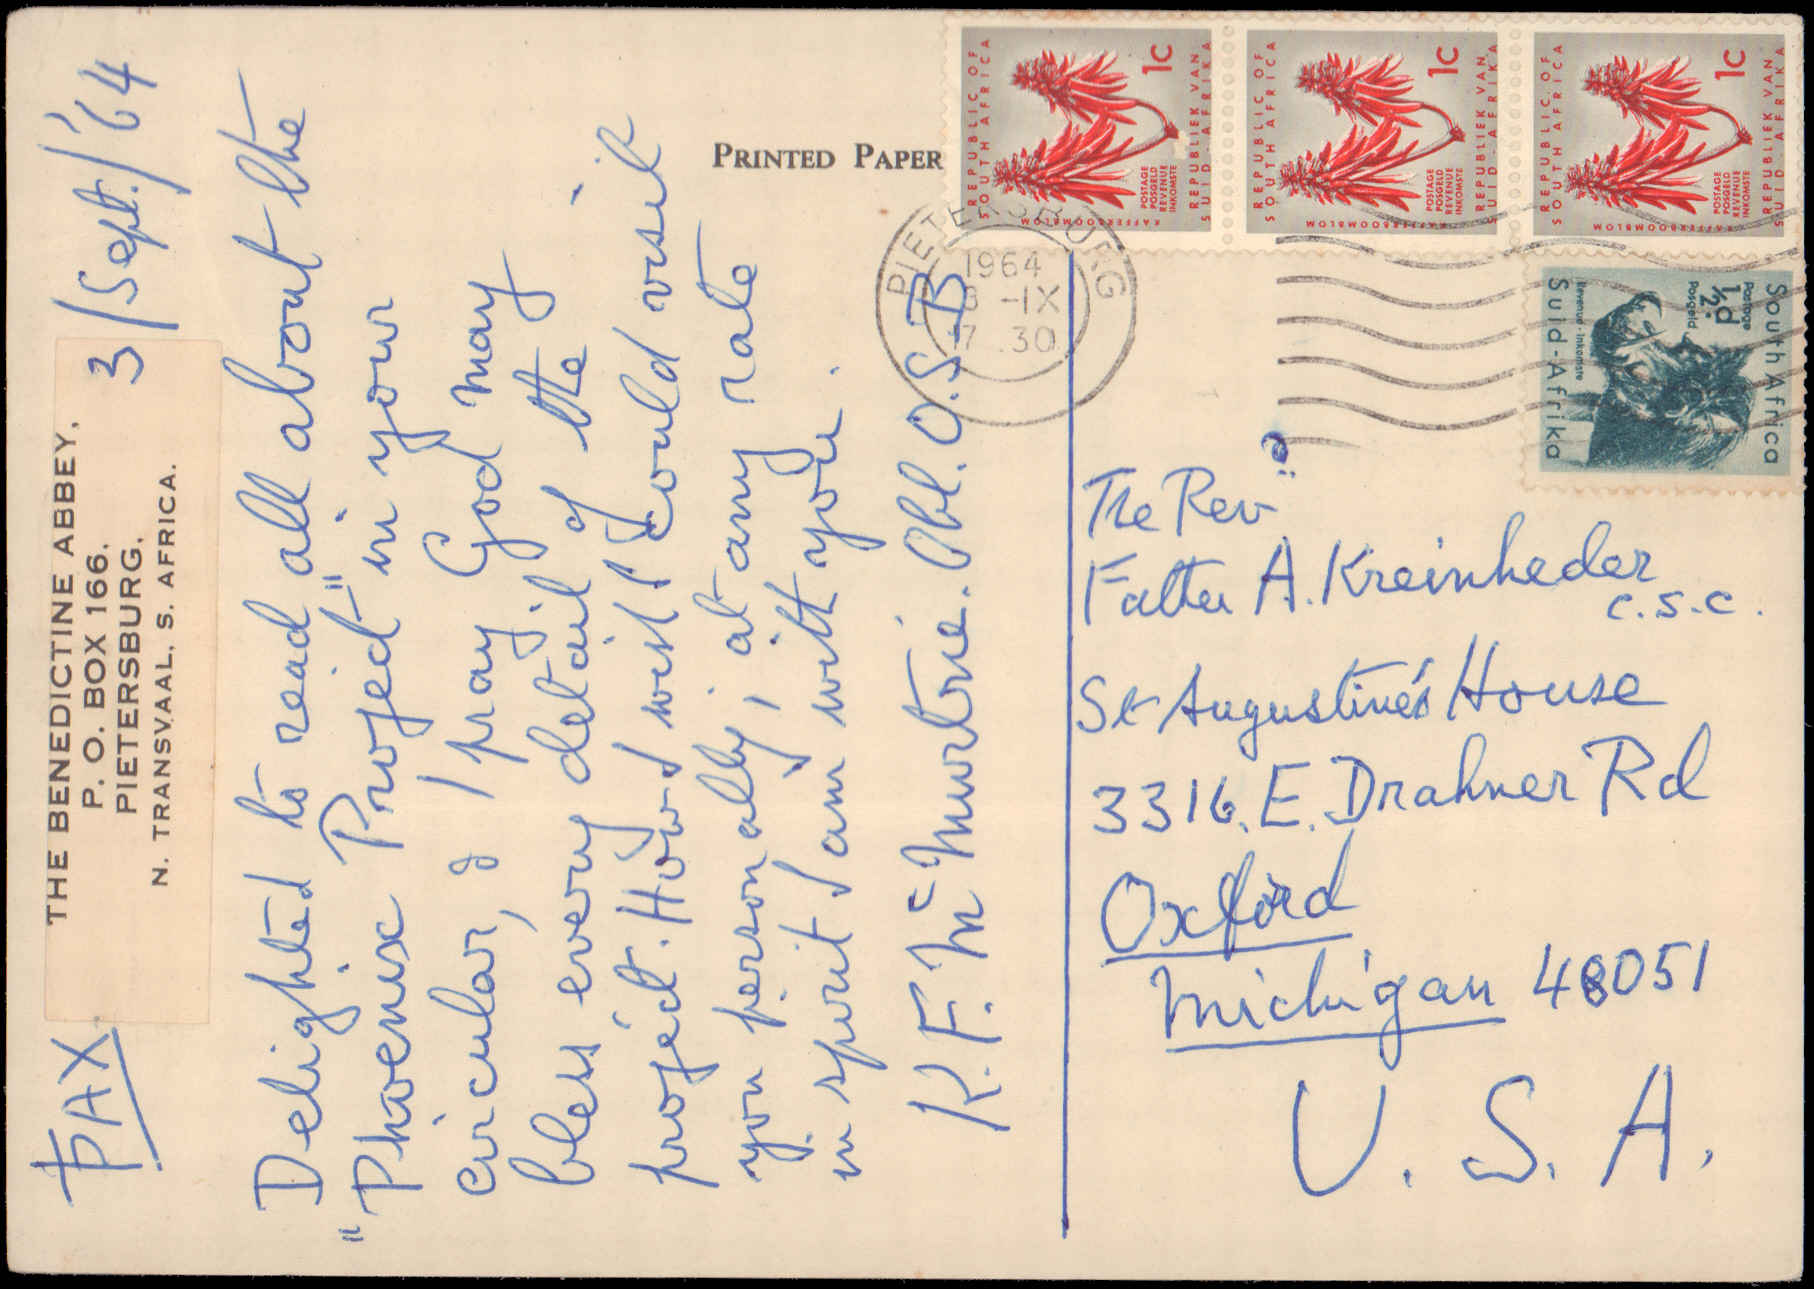 PAX
THE BENEDICTINE ABBEY,
P. O. BOX 166.
PIETERSBURG,
N. TRANSVAAL, S. AFRICA.
3/Sept./'64
Delighted to read all about the
"Phoenix Project" in your
circular, & I pray God may
bless every detail of the
project. How I wish I could visit
you personally; at any rate
in spirit I am with you.
K. F. McMurtrie. Obl. O.S.B
PRINTED PAPER
REPUBLIC OF
SOUTH AFRICA
1C
POSTAGE
POSGELD
REVENUE
INKOMSTE
REPUBLIEK VAN
SUID-AFRIKA
KAFFERBOOMBLOM
REPUBLIC OF
SOUTH AFRICA
1C
POSTAGE
POSGELD
REVENUE
INKOMSTE
REPUBLIEK VAN
SUID-AFRIKA
KAFFERBOOMBLOM
REPUBLIC OF
SOUTH AFRICA
1C
POSTAGE
POSGELD
REVENUE
INKOMSTE
REPUBLIEK VAN
SUID-AFRIKA
KAFFERBOOMBLOM
South Africa
Postage
1½d.
Posgeld
Revenue-Inkomste
Suid-Afrika
PIETERSBURG
1964
-IX
17.30
The Rev
Father A. Kreinheder
C.S.C.
St Augustine's House
3316. E. Drahner Rd
Oxford
Michigan 48051
U. S. A.